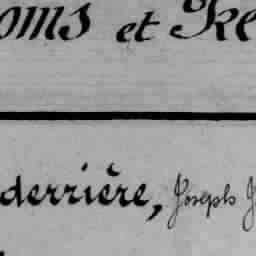 oms et Re
derrière, Joseph J